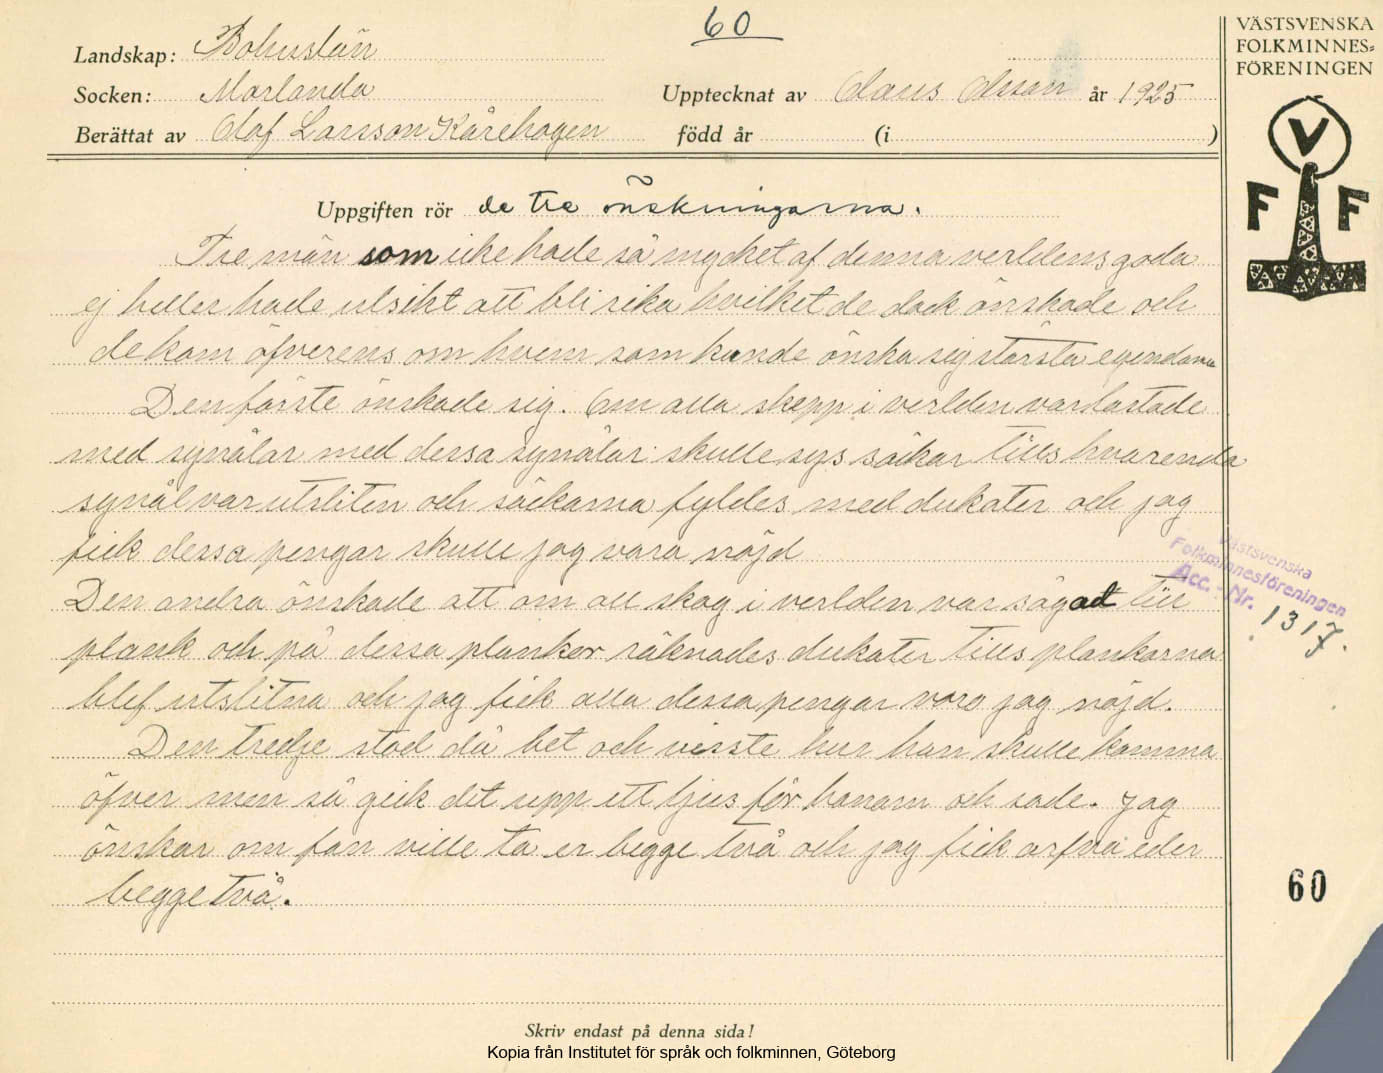 60
VÄSTSVENSKA
FOLKMINNES=
FÖRENINGEN
Landskap: Bohuslän
Socken: Morlanda
Upptecknat av Claus Olsson år 1925
Berättat av Olof Larsson Kårehogen född år (i )
V
F F
Uppgiften rör de tre önskningarna.
Tre män som icke hade så mycket af denna verldens goda
ej heller hade utsikt att bli rika hvilket de dock önskade och
de kom öfverens om hvem som kunde önska sig största egendom
Den förste önskade sig. Om alla skepp i verlden var lastade
med synålar med dessa synålar skulle sys säckar tills hvarenda
synål var utsliten och säckarna fyldes med dukater och jag
fick dessa pengar skulle jag vara nöjd
Den andra önskade att om all skog i verlden var sågad till
plank och på dessa plankor räknades dukater tills plankorna
blef utslitna och jag fick alla dessa pengar voro jag nöjd.
Den tredje stod då bet och visste hur han skulle komma
öfver men så gick det upp ett ljus för honom och sade. Jag
önskar om fan ville ta er begge två och jag fick arfva eder
begge två.
Västsvenska
Folkminnesföreningen
Acc. - Nr. 1317.
60
Skriv endast på denna sida!
Kopia från Institutet för språk och folkminnen, Göteborg